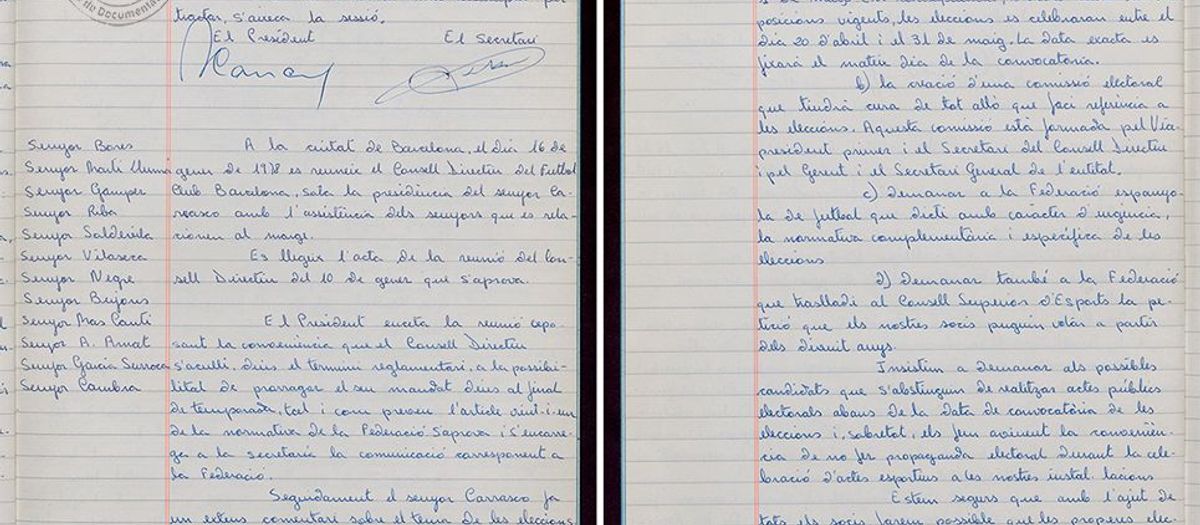 de Documentac
tractar, s'aixeca la sessió.
El President
El Secretari
Senyor Bores
Senyor Martí Lluma
Senyor Gamper
Senyor Riba
Senyor Saldevila
Senyor Vilaseca
Senyor Negre
Senyor Bujons
Senyor Mas Cantí
Senyor A. Amat
Senyor Garcia Surroca
Senyor Cambra
A la ciutat de Barcelona, el dia 16 de
gener de 1978 es reuneix el Consell Directiu del Futbol
Club Barcelona, sota la presidència del senyor Ca-
rrasco amb l'assistència dels senyors que es rela-
cionen al marge.
Es llegix l'acta de la reunió del Con-
sell Directiu del 10 de gener que s'aprova.
El President enceta la reunió expo-
sant la conveniència que el Consell Directiu
s'aculli, dins el termini reglamentari, a la possibi-
litat de prorrogar el seu mandat dins al final
de temporada, tal i com preveu l'article vint-i-un
de la normativa de la Federació s'aprova i s'encarre-
ga a la secretaria la comunicació corresponent a
la Federació.
Seguidament el senyor Carrasco fa
un extens comentari sobre el tema de les eleccions
posicions vigents, les eleccions es celebraran entre el
dia 20 d'abril i el 31 de maig. La data exacta es
fixarà el mateix dia de la convocatòria.
b) la creació d'una comissió electoral
que tindrà cura de tot allò que faci referència a
les eleccions. Aquesta comissió està formada pel Vice-
president primer i el Secretari del Consell Directiu
i pel Gerent i el Secretari General de l'entitat.
c) Demanar a la Federació espanyo-
la de futbol que dicti amb caràcter d'urgència,
la normativa complementària i específica de les
eleccions
d) Demanar també a la Federació
que traslladi al Consell Superior d'Esports la pe-
tició que els nostres socis puguin votar a partir
dels divuit anys.
Insistim a demanar als possibles
candidats que s'abstinguin de realitzar actes públics
electorals abans de la data de convocatòria de les
eleccions i, sobretot, els fem avinent la convenièn-
cia de no fer propaganda electoral durant la cele-
bració d'actes esportius a les nostres instal·lacions
Estem segurs que amb l'ajut de
tots els socis farem possible que les properes elec-